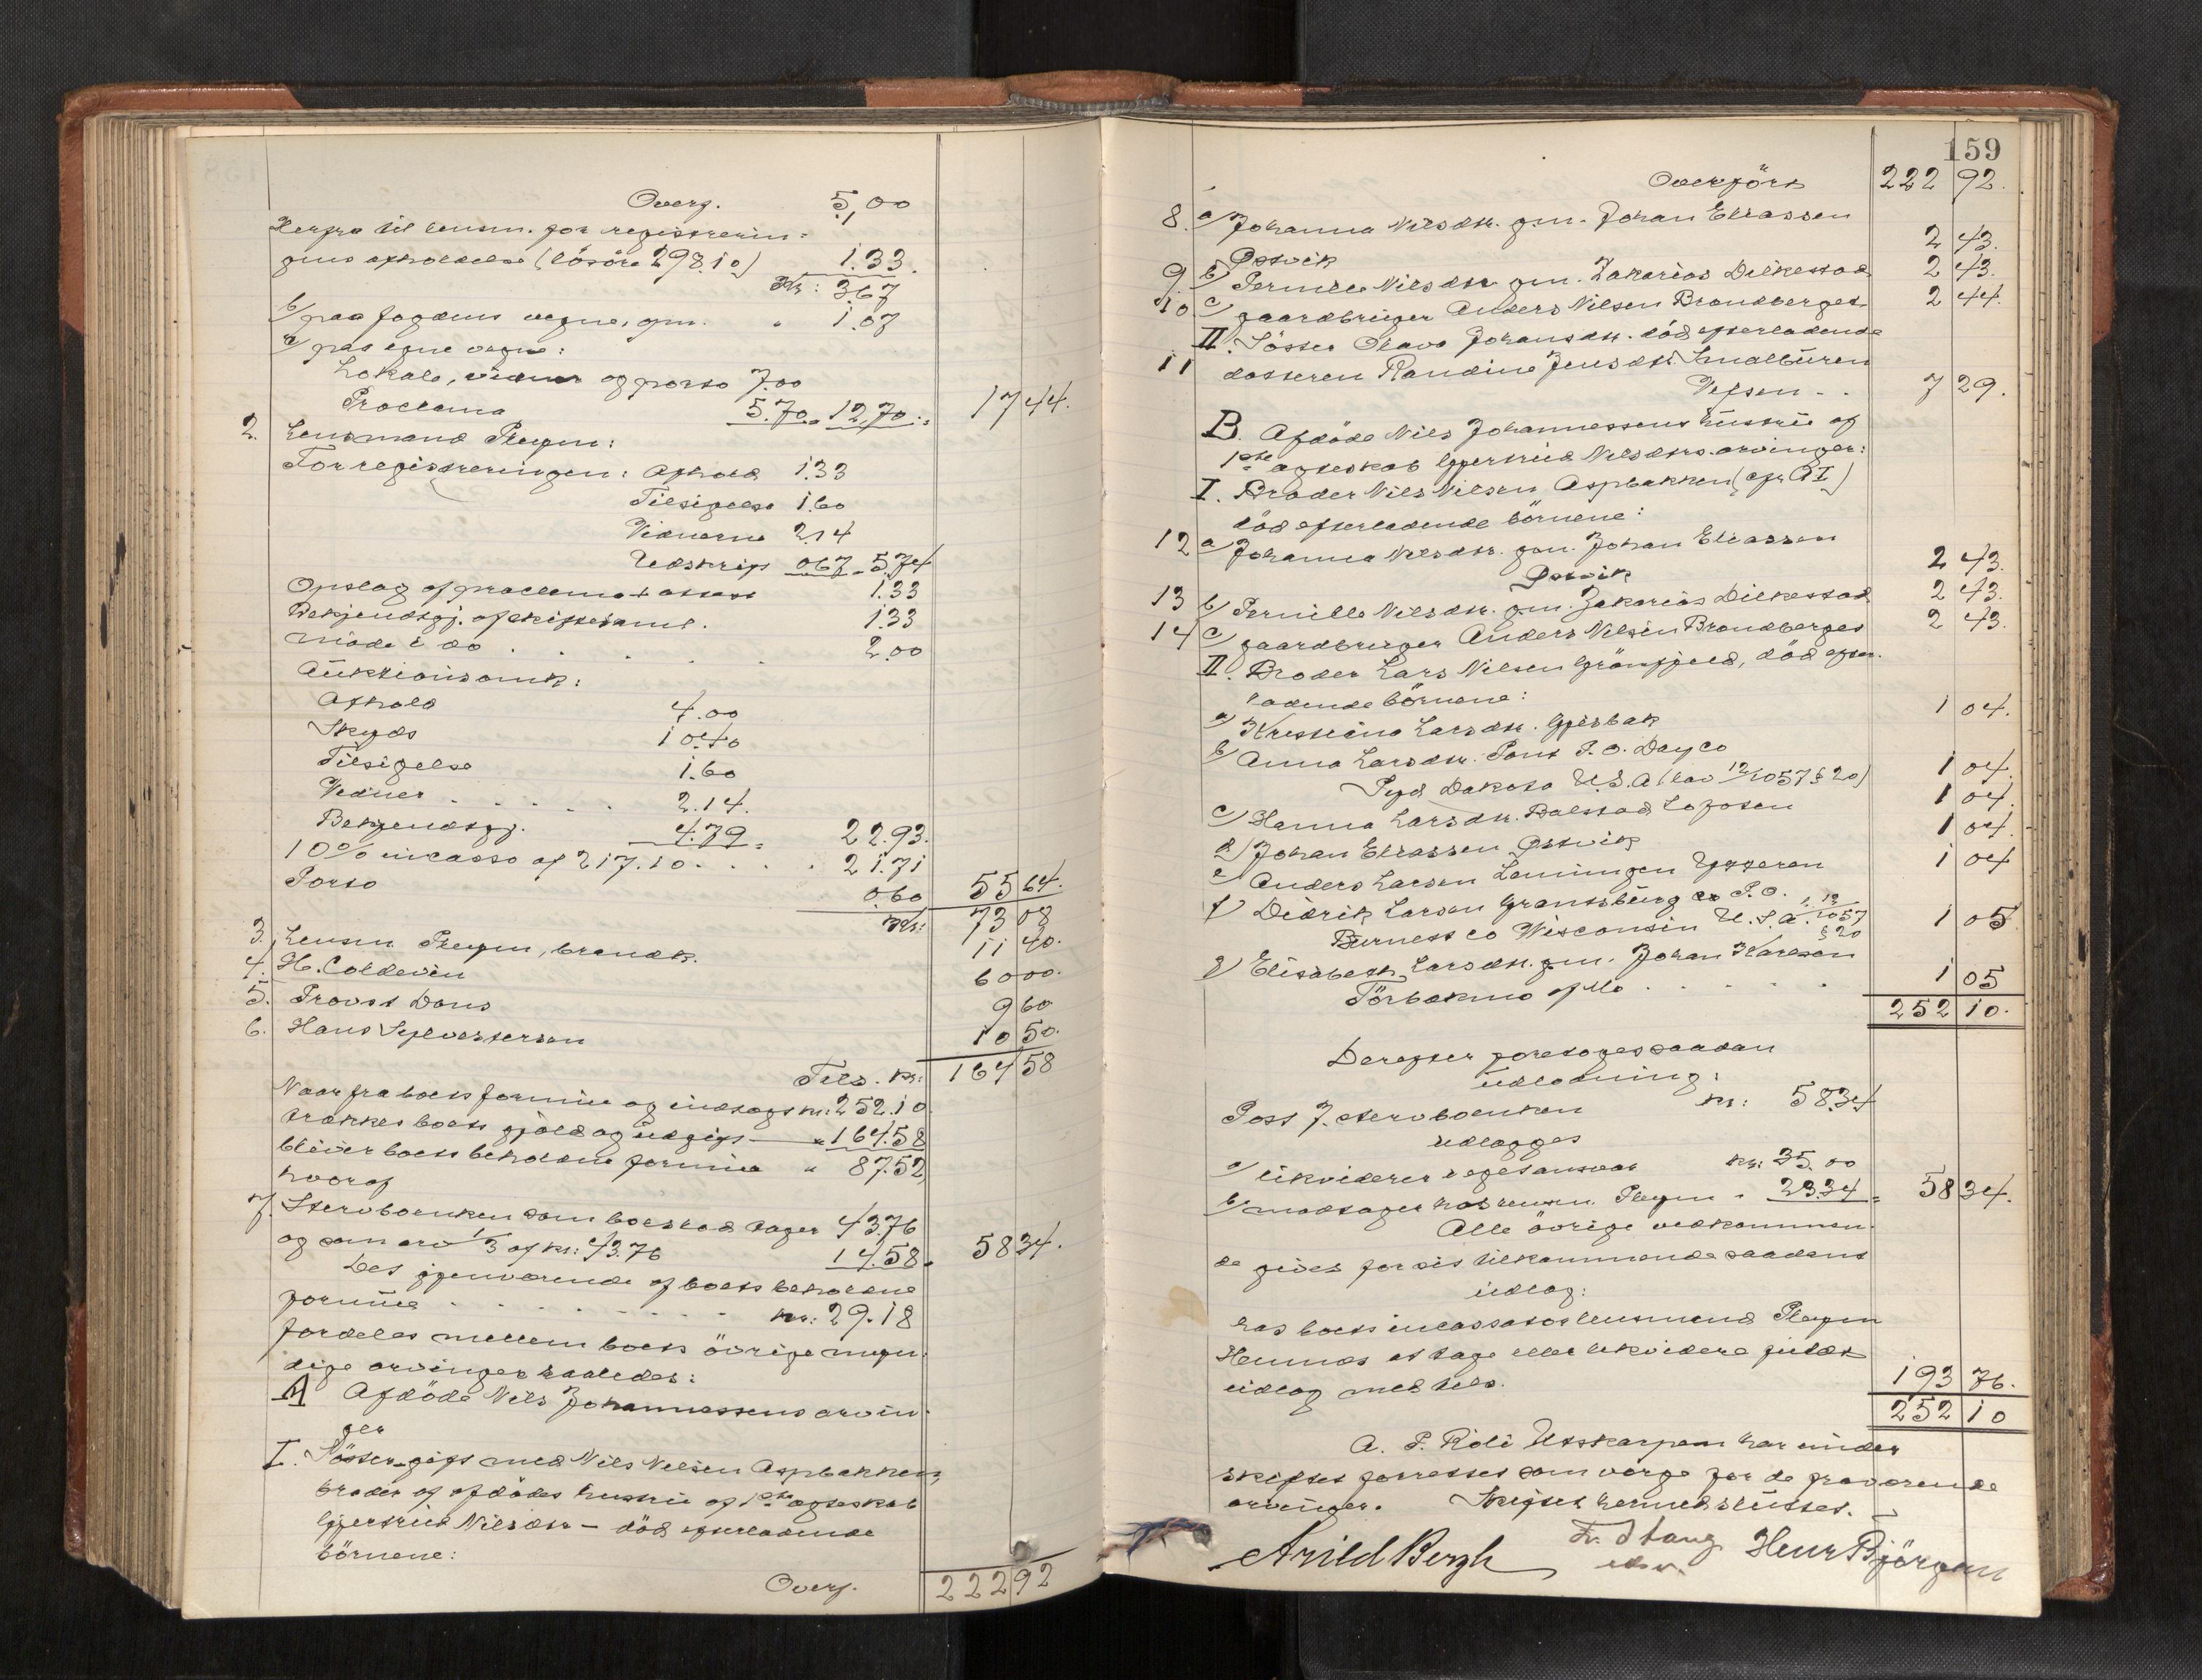 Overf. 5,00
Herfra til lensm. for registrerin-
gens afholdelse (lösöre 298.10) 1.33.
Kr: 3.67
b/ paa fogdens vegne, gm. " 1.07
c/ paa egne vegne:
Lokale, vidner og porto 7.00
Proclama 5.70 " 12.70 = 17 44.
2. Lensmand Pleym:
For registreringen: Afhold 1.33
Tilsigelse 1.60
Vidnerne 2.14
Udskrift 0.67 = 5.74
Opslag af proclama + attest 1.33
Bekjendtgj. af skiftesaml. 1.33
Møde i do . . . . 2.00
Auktionsomk:
Afhold 4.00
Skyds 10.40
Tilsigelse 1.60
Vidner . . . . . 2.14.
Bekjendtgj. 4.79 = 22.93.
10% incasso af 217.10 . . . . 21.71
Porto 0.60 55 64.
Kr: 73 08
3. Lensm Pleym, brandk. 11 40.
4. H. Coldevin 60 00.
5. Provst Dons 9 60
6. Hans Sylvestersen 10 50.
Tils. Kr: 164 58
Naar fra boets formue og indtægt kr: 252.10
trækkes boets gjæld og udgift — " 164.58
bliver boets beholdne formue " 87.52
hvoraf
7. Stervboenken som boeslod tager 43.76
og som arv 1/3 af kr: 43.76 14.58 = 58 34.
Det gjenværende af boets beholdne
formue . . . . . . . . kr: 29.18
fordeles mellem boets övrige myn-
dige arvinger saaledes:
A Afdöde Nils Johannessens arvin-
ger
I. Söster gift med Nils Nilsen Aspbakken,
broder af afdödes hustru af 1ste ægteskab
Gjertrud Nilsdtr — död efterladende
börnene:
Overf. 222 92
159
Overfört 222 92.
8. a/ Johanna Nilsdtr. gm. Johan Eliassen
Østvik 2 43.
9. b/ Pernille Nilsdtr gm. Zakarias Dilkestad 2 43.
10 c/ gaardbruger Anders Nilsen Brandberget 2 44.
II. Söster Olava Johansdtr. död efterladende
11 datteren Randine Jensdtr. Smalburen
Vefsen . . 7 29.
B. Afdöde Nils Johannessens hustru af
1ste ægteskab Gjertrud Nilsdtrs. arvinger:
I. Broder Nils Nilsen Aspbakken (cfr A I)
död efterladende börnene:
12 a/ Johanna Nilsdtr. gm. Johan Eliassen
Østvik 2 43.
13 b/ Pernille Nilsdtr. gm. Zakarias Dilkestad 2 43.
14 c/ gaardbruger Anders Nilsen Brandberget 2 43.
II. Broder Lars Nilsen Grönfjeld, död efter-
ladende börnene:
a/ Kristiana Larsdtr. Gjesbak 1 04.
b/ Anna Larsdtr. Pont P.O. Day Co
Syd Dakota U.S.A (lov 12/10 57 § 20) 1 04.
c/ Hanna Larsdtr. Balstad Lofoten 1 04.
d/ Johan Eliassen Østvik 1 04.
e/ Anders Larsen Lanningen Ytteren 1 04
f/ Didrik Larsen Grantsburg P.O.
Burnett co Wisconsin U.S.A. l. 12/10 57 § 20 1 05
g/ Elisabeth Larsdtr. gm. Johan Karlsen
Törbækmo af Mo . . . . . 1 05
252 10.
Derefter foretoges saadan
udlodning:
Post 7. stervboenken kr: 58.34
udlægges
a/ likviderer eget ansvar kr: 35.00
b/ modtager hos lensm. Pleym " 23.34 = 58 34.
Alle övrige vedkommen-
de gives for sit tilkommende saadant
udlæg:
hos boets incassator lensmand Pleym
Hemnæs at tage eller likvidere fuldt
udlæg med tils. 193 76.
252 10
A. P. Röli Utskarpen har under
skiftet forrettet som værge for de fraværende
arvinger. Skiftet hermed sluttet.
Arild Bergh Henr Björgan